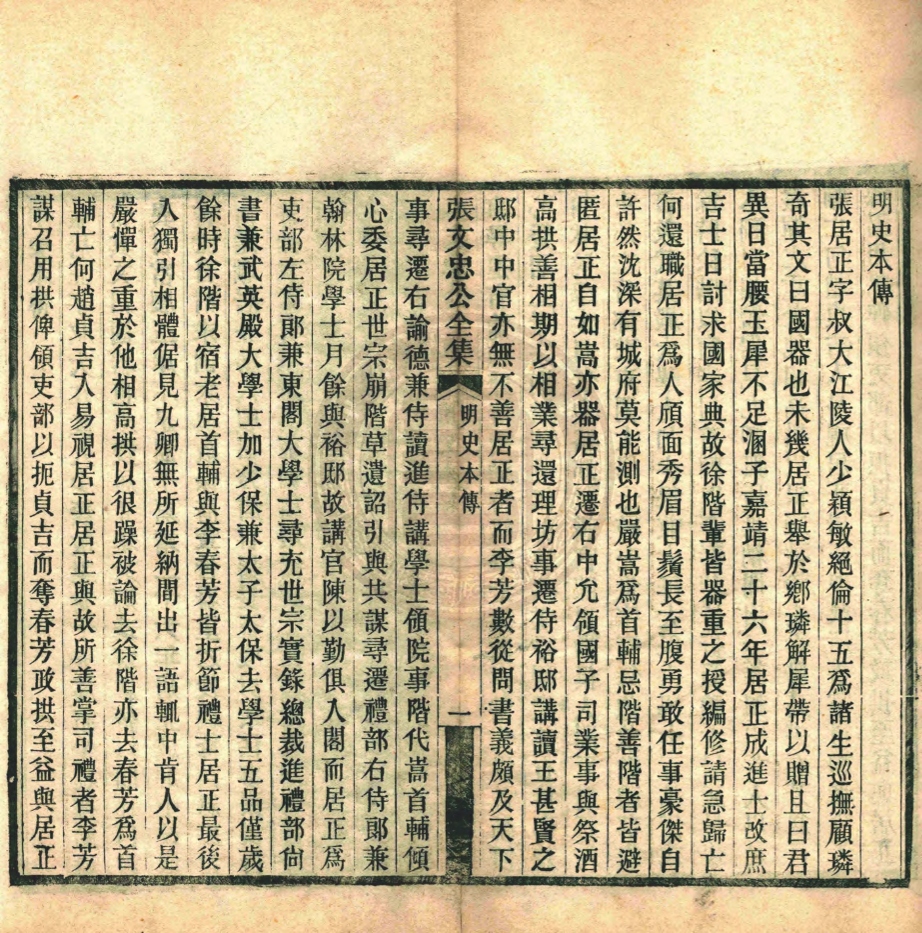 明史本傳
張居正字叔大江陵人少穎敏絕倫十五爲諸生巡撫顧璘
奇其文曰國器也未幾居正舉於鄉璘解犀帶以贈且曰君
異日當腰玉犀不足溷子嘉靖二十六年居正成進士改庶
吉士日討求國家典故徐階輩皆器重之授編修請急歸亡
何還職居正爲人頎面秀眉目鬚長至腹勇敢任事豪傑自
許然沈深有城府莫能測也嚴嵩爲首輔忌階善階者皆避
匿居正自如嵩亦器居正遷右中允領國子司業事與祭酒
高拱善相期以相業尋還理坊事遷侍裕邸講讀王甚賢之
邸中中官亦無不善居正者而李芳數從問書義頗及天下
張文忠公全集 明史本傳 一
事尋遷右諭德兼侍讀進侍講學士領院事階代嵩首輔傾
心委居正世宗崩階草遺詔引與共謀尋遷禮部右侍郎兼
翰林院學士月餘與裕邸故講官陳以勤俱入閣而居正爲
吏部左侍郎兼東閣大學士尋充世宗實錄總裁進禮部尙
書兼武英殿大學士加少保兼太子太保去學士五品僅歲
餘時徐階以宿老居首輔與李春芳皆折節禮士居正最後
入獨引相體倨見九卿無所延納間出一語輒中肯人以是
嚴憚之重於他相高拱以很躁被論去徐階亦去春芳爲首
輔亡何趙貞吉入易視居正居正與故所善掌司禮者李芳
謀召用拱俾領吏部以扼貞吉而奪春芳政拱至益與居正